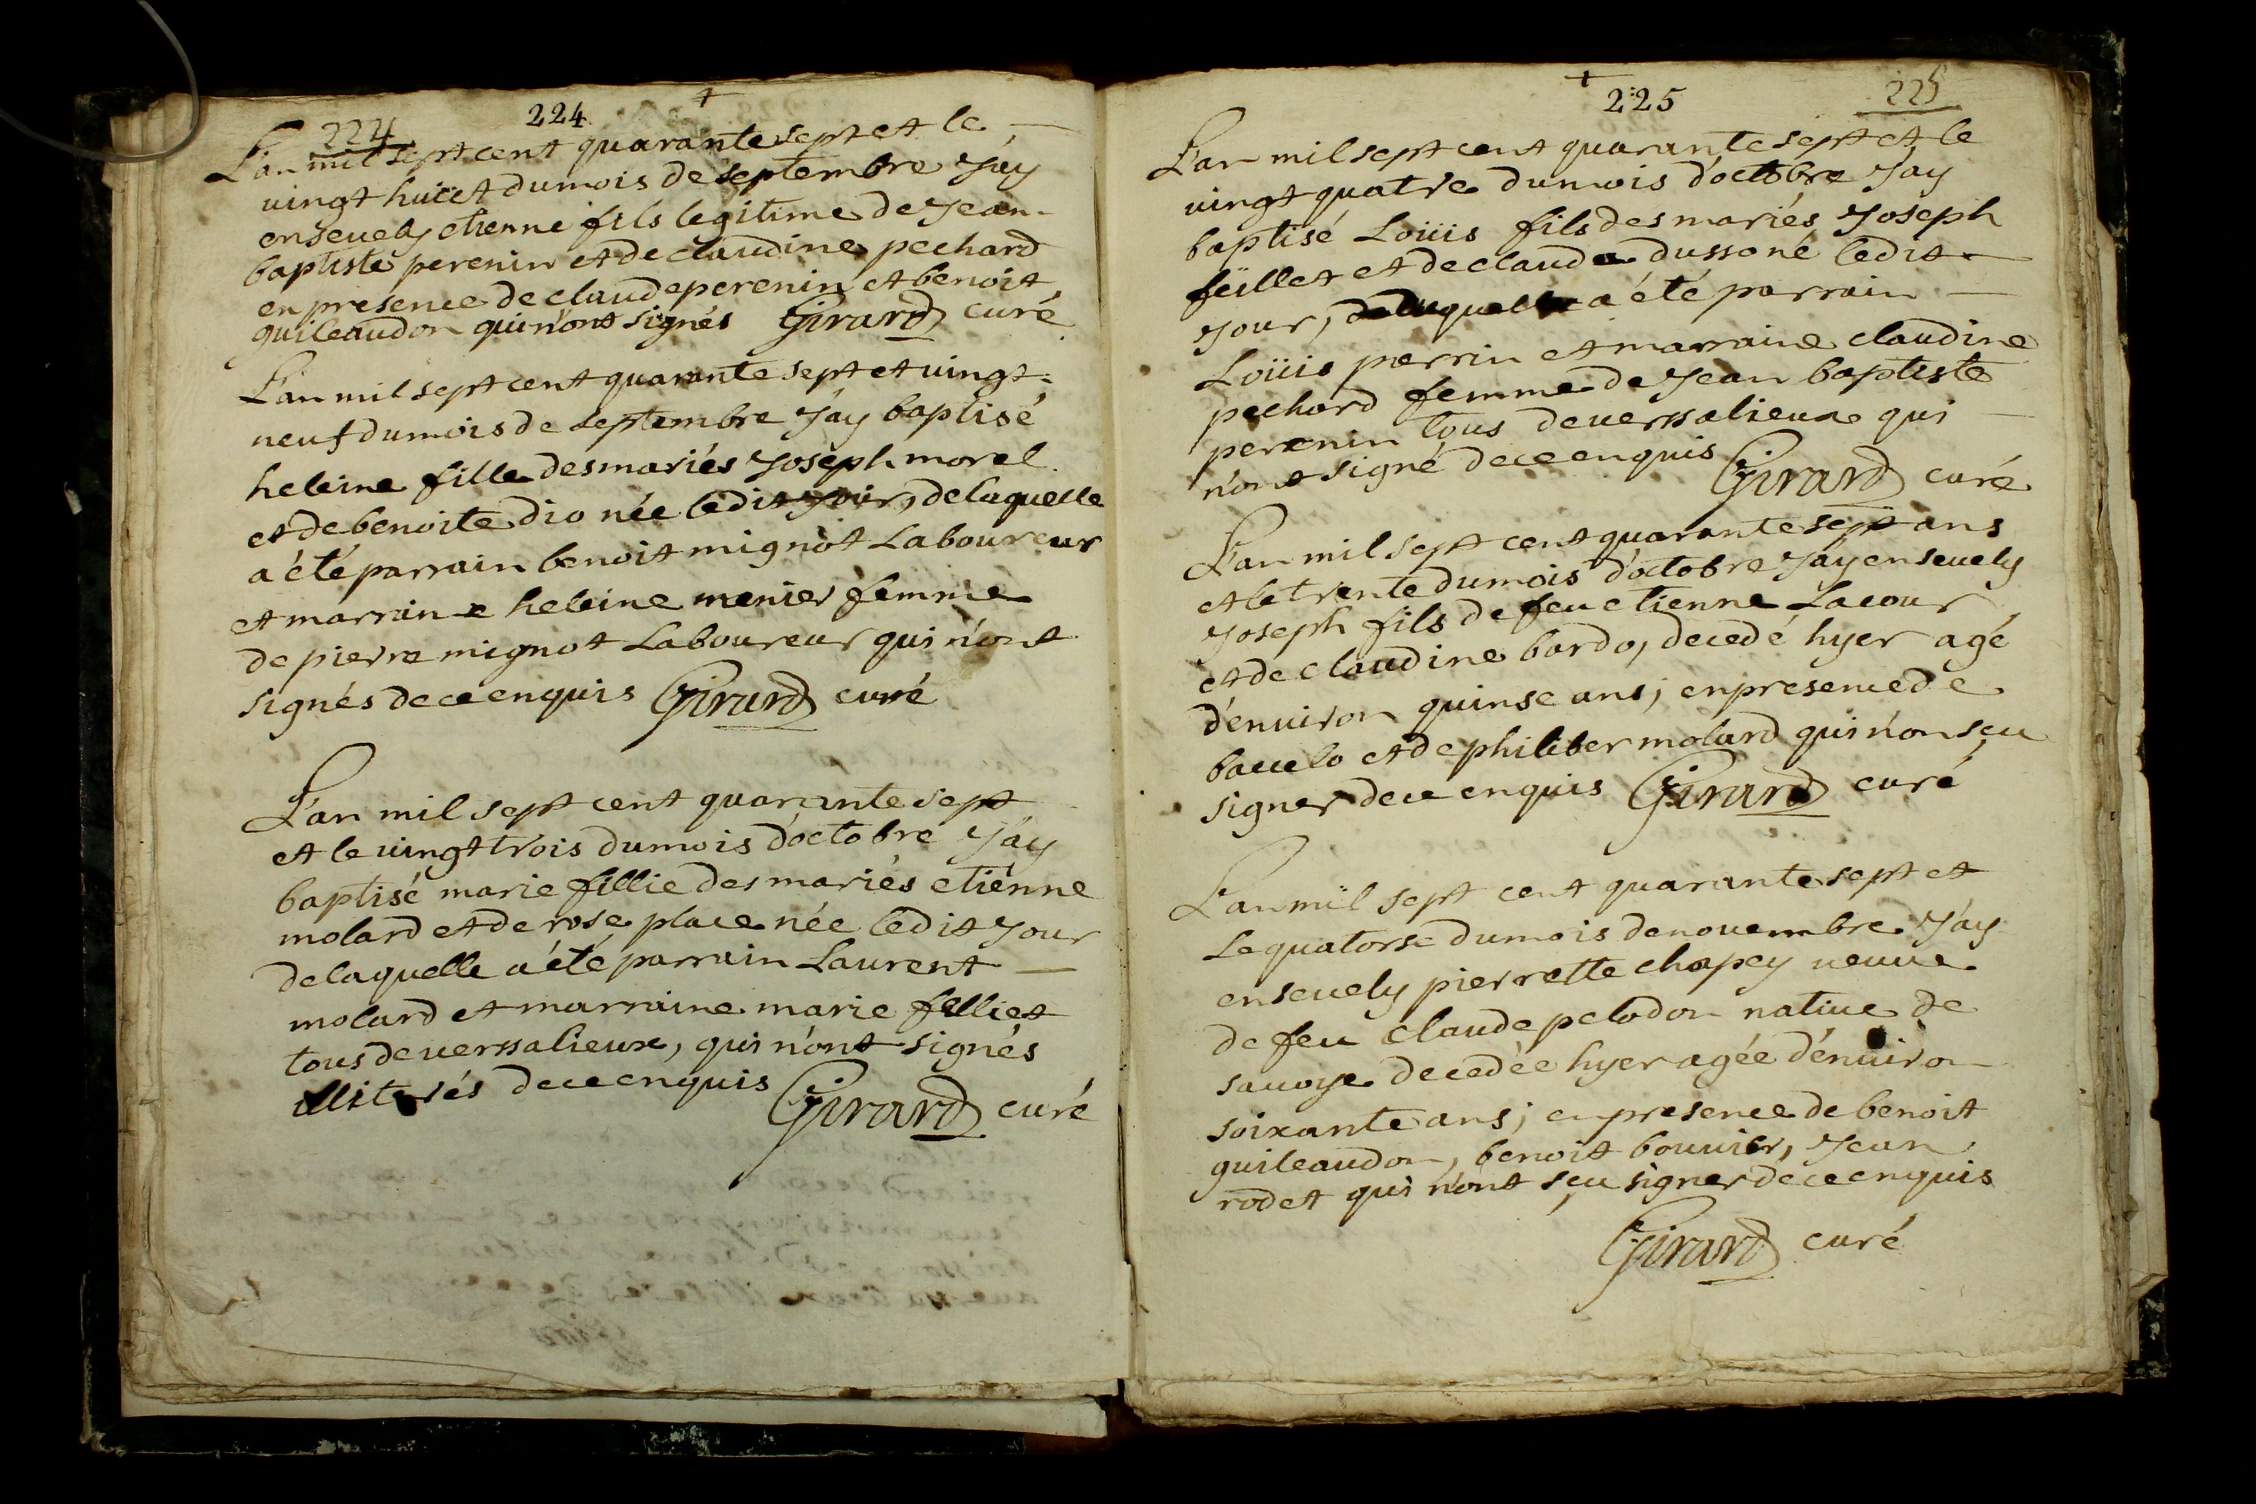 224
224
L'an mil sept cent quarante sept et le
uingt huict du mois de septembre J'ay
enseuely etienne fils legitime de Jean-
baptiste perenin et de claudine pechard
en presence de claude perenin et benoit
guileaudon qui n'ont signés Girard curé
L'an mil sept cent quarante sept et uingt-
neuf du mois de septembre J'ay baptisé
heleine fille des mariés Joseph morel
et de benoite dio née ledit Jour, de laquelle
a été parrain benoit mignot Laboureur
et marraine heleine menier femme
de pierre mignot Laboureur qui n'ont
signés de ce enquis Girard curé
L'an mil sept cent quarante sept
et le uingt trois du mois d'octobre J'ay
baptisé marie fillie des mariés etienne
molard et de rose place née ledit Jour
de laquelle a été parrain Laurent
molard et marraine marie filliet
tous de uersalieux, qui n'ont signés
illiterés de ce enquis Girard curé
225
225
L'an mil sept cent quarante sept et le
uingt quatre du mois d'octobre J'ay
baptisé Loüis fils des mariés Joseph
feüllet et de claude dussone ledit
Jour, duquel a été parrain
Loüis perrin et marraine claudine
pechard femme de Jean baptiste
perenin tous de uersalieux qui
n'ont signé de ce enquis Girard curé
L'an mil sept cent quarante sept ans
et le trente du mois d'octobre J'ay enseuely
Joseph fils de feu etienne Lacour
et de claudine bardo, decedé hyer agé
d'enuiron quinse ans; en presence de
bauelo et de philiber molard qui n'on sçu
signer de ce enquis Girard curé
L'an mil sept cent quarante sept et
le quatorse du mois de nouembre J'ay
enseuely pierrette chapey ueuue
de feu claude pelodon natiue de
sauoye decedée hyer agée d'enuiron
soixante ans; en presence de benoit
guileaudon, benoit bouuier, Jean
rodet qui n'ont sçu signer de ce enquis
Girard curé